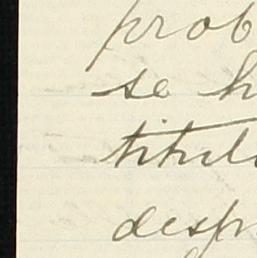 prob
se h
titul
desp